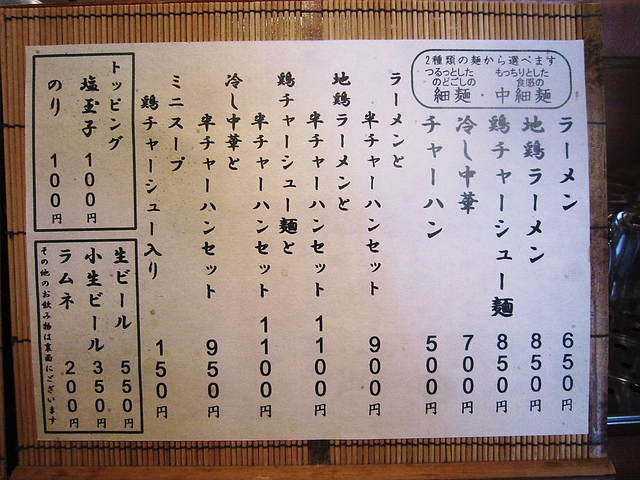 2種類の麺から選べます
もっちりとした
食感の
中細麺
・
つるっとした
のどごしの
細麺
ラーメン 650円
地鶏ラーメン 850円
鶏チャーシュー麺 850円
冷し中華 700円
チャーハン 500円
ラーメンと
半チャーハンセット 900円
地鶏ラーメンと
半チャーハンセット 1100円
鶏チャーシュー麺と
半チャーハンセット 1100円
冷し中華と
半チャーハンセット 950円
ミニスープ
鶏チャーシュー入り 150円
トッピング
塩玉子 100円
のり 100円
生ビール 550円
小生ビール 350円
ラムネ 200円
その他のお飲み物は裏面にございます